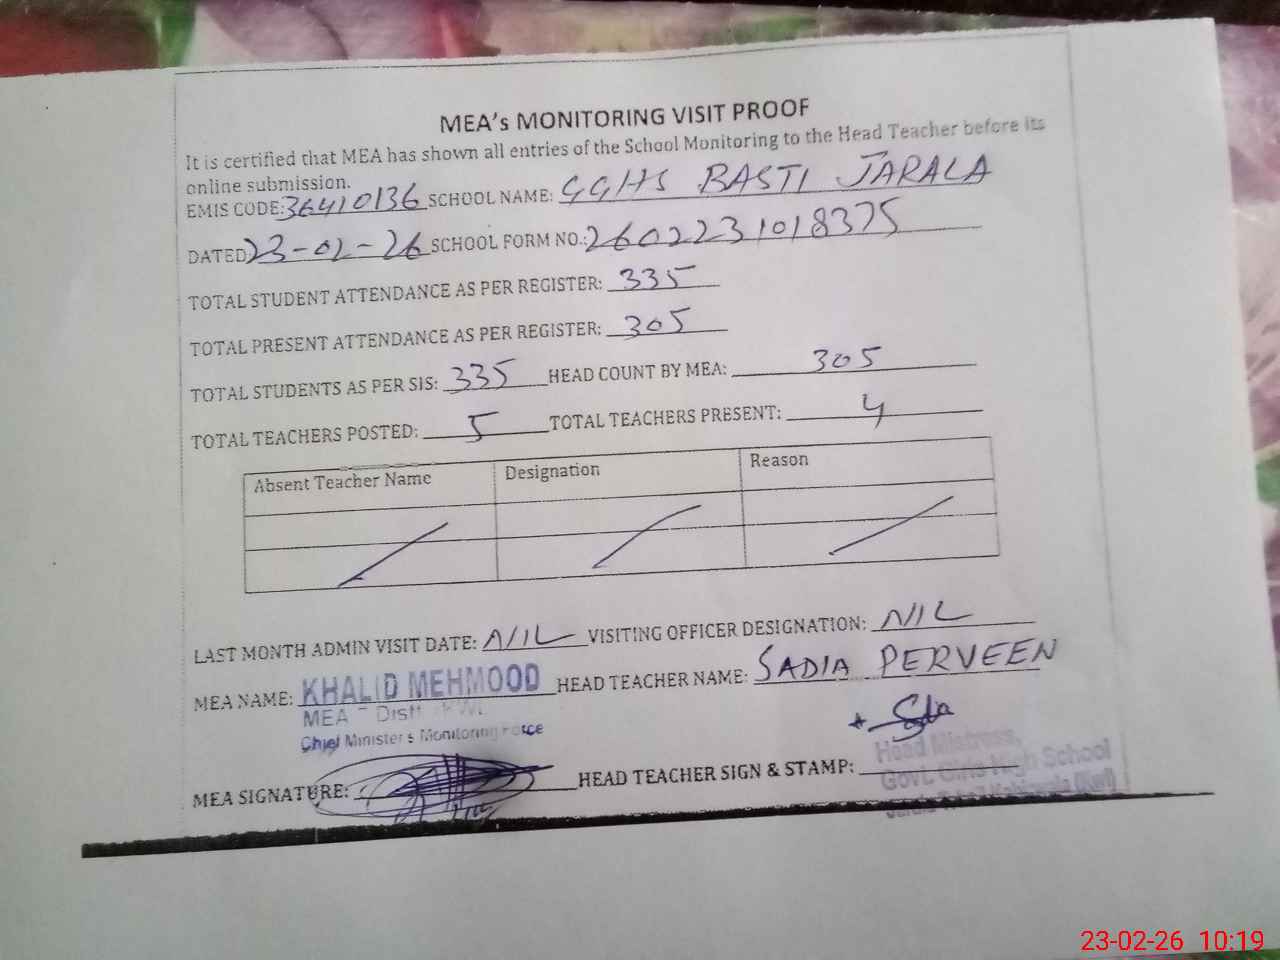 MEA's MONITORING VISIT PROOF
It is certified that MEA has shown all entries of the School Monitoring to the Head Teacher before its
online submission.
EMIS CODE: 36410136 SCHOOL NAME: GGHS BASTI JARALA
DATED: 23-02-26 SCHOOL FORM NO.: 2602231018375
TOTAL STUDENT ATTENDANCE AS PER REGISTER: 335
TOTAL PRESENT ATTENDANCE AS PER REGISTER: 305
TOTAL STUDENTS AS PER SIS: 335 HEAD COUNT BY MEA: 305
TOTAL TEACHERS POSTED: 5 TOTAL TEACHERS PRESENT: 4
Absent Teacher Name Designation Reason
LAST MONTH ADMIN VISIT DATE: NIL VISITING OFFICER DESIGNATION: NIL
MEA NAME: KHALID MEHMOOD HEAD TEACHER NAME: SADIA PERVEEN
MEA - Distt
Chief Minister's Monitoring Force
Head Mistress,
MEA SIGNATURE: HEAD TEACHER SIGN & STAMP:
Govt. Girls High School
23-02-26 10:19